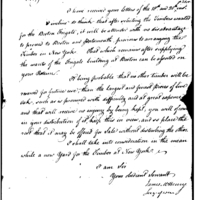 I have received your letter of the 18th and 20th
Timber to think that after selecting the Timbers wanted
for the Boston Frigate, it will be attended with no disadvantage
to proceed to Boston and Portsmouth previous to arranging the
Timber in New York. That which remains after supplying
the wants of the Frigate building at Boston can be assorted on
your Return.
It being probable that no other Timber will be
required for future use, than the largest and finest Pieces of live
Oak, such as is procured with difficulty and at great expence
and that will receive no injury by being kept, you will give
in your distribution of it, keep this in view, and so place the
rest that it may be offered for Sale without disturbing the other.
I shall take into consideration in the mean
while a new yard for the Timber at New York.
I am Sir
Your obedient Servant
James McHenry